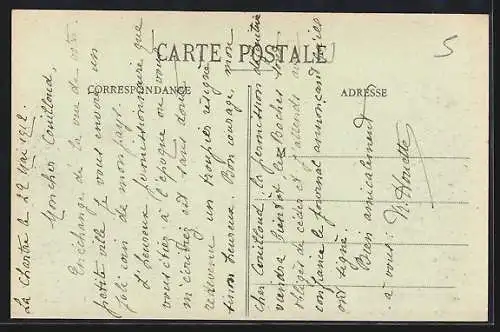 CARTE POSTALE
CORRESPONDANCE
ADRESSE
5
La Chartre le 22 Mai 1912
Mon cher Couilloud,
En échange de la vue de votre
petite ville je vous envoie un
joli coin de mon pays.
L'heureux permissionnaire que
vous étiez à l'époque où vous
m'écriviez est sans doute
redevenu un troupier résigné
sinon heureux. Bon courage, mon
cher Couilloud, la permission
viendra bientôt les Boches
obligés de céder et j'attends
confiance le journal annonçant
ont signé
Bien amicalement
à vous,